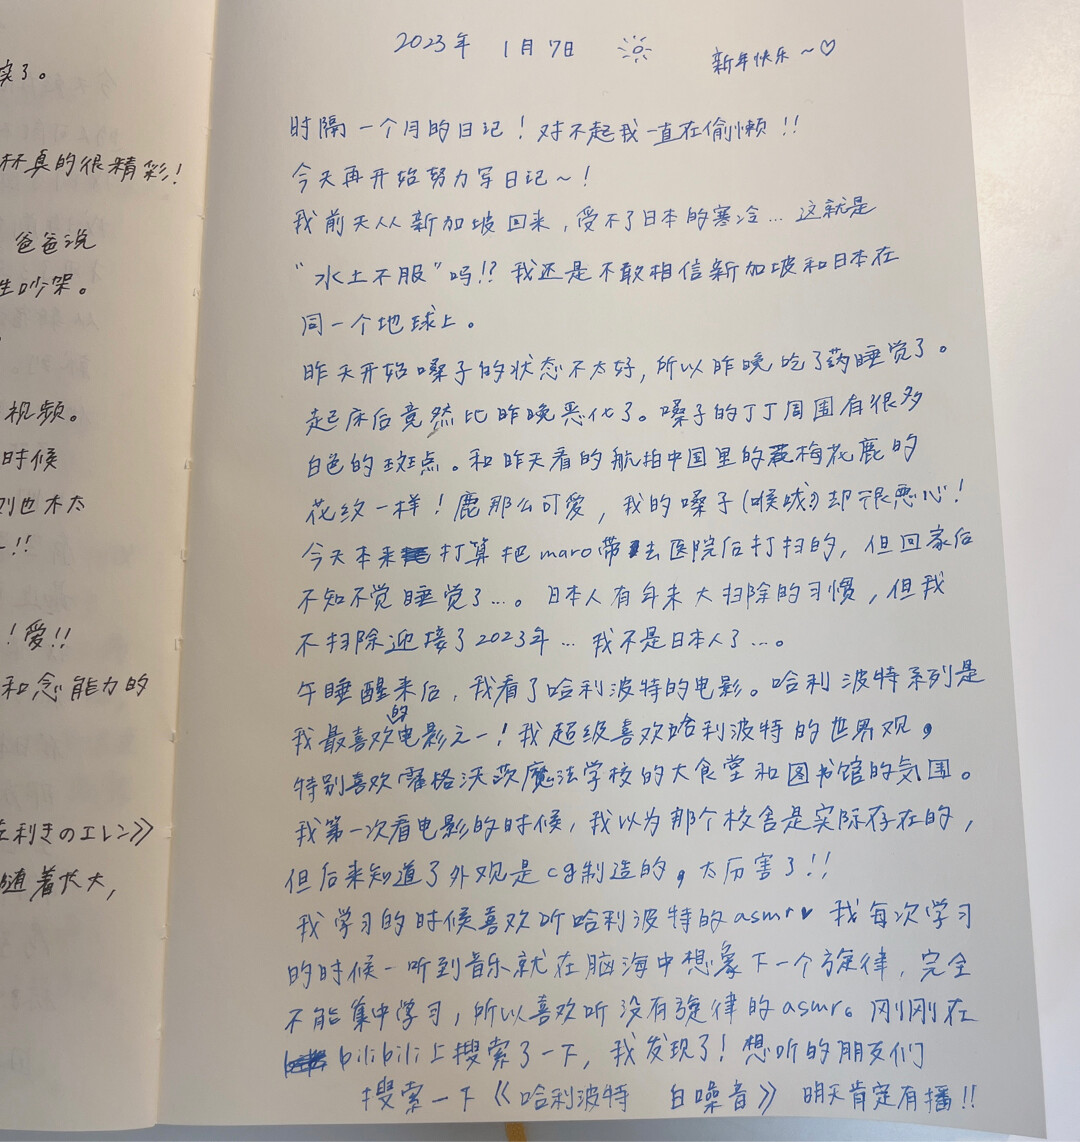 实了。
林真的很精彩!
爸爸说
生吵架。
视频。
时候
别也木太
–!!
!爱!!
和念能力的
左利きのエレン》
随着长大,
2023年 1月7日
新年快乐~♡
时隔一个月的日记!对不起我一直在偷懒!!
今天再开始努力写日记~!
我前天从新加坡回来,受不了日本的寒冷…这就是
“水土不服”吗!?我还是不敢相信新加坡和日本在
同一个地球上。
昨天开始嗓子的状态不太好,所以昨晚吃了药睡觉了。
起床后竟然比昨晚恶化了。嗓子的丁丁周围有很多
白色的斑点。和昨天看的航拍中国里的梅花鹿的
花纹一样!鹿那么可爱,我的嗓子(喉咙)却很恶心!
今天本来打算把maro带去医院后打扫的,但回家后
不知不觉睡觉了…。日本人有年末大扫除的习惯,但我
不扫除迎接了2023年…我不是日本人了…。
午睡醒来后,我看了哈利波特的电影。哈利波特系列是
我最喜欢的电影之一!我超级喜欢哈利波特的世界观,
特别喜欢霍格沃茨魔法学校的大食堂和图书馆的気围。
我第一次看电影的时候,我以为那个校舍是实际存在的,
但后来知道了外观是cg制造的,太厉害了!!
我学习的时候喜欢听哈利波特的asmr♥我每次学习
的时候一听到音乐就在脑海中想象下一个旋律,完全
不能集中学习,所以喜欢听没有旋律的asmr。刚刚在
bilibili上搜索了一下,我发现了!想听的朋友们
搜索一下《哈利波特 白噪音》明天肯定有播!!